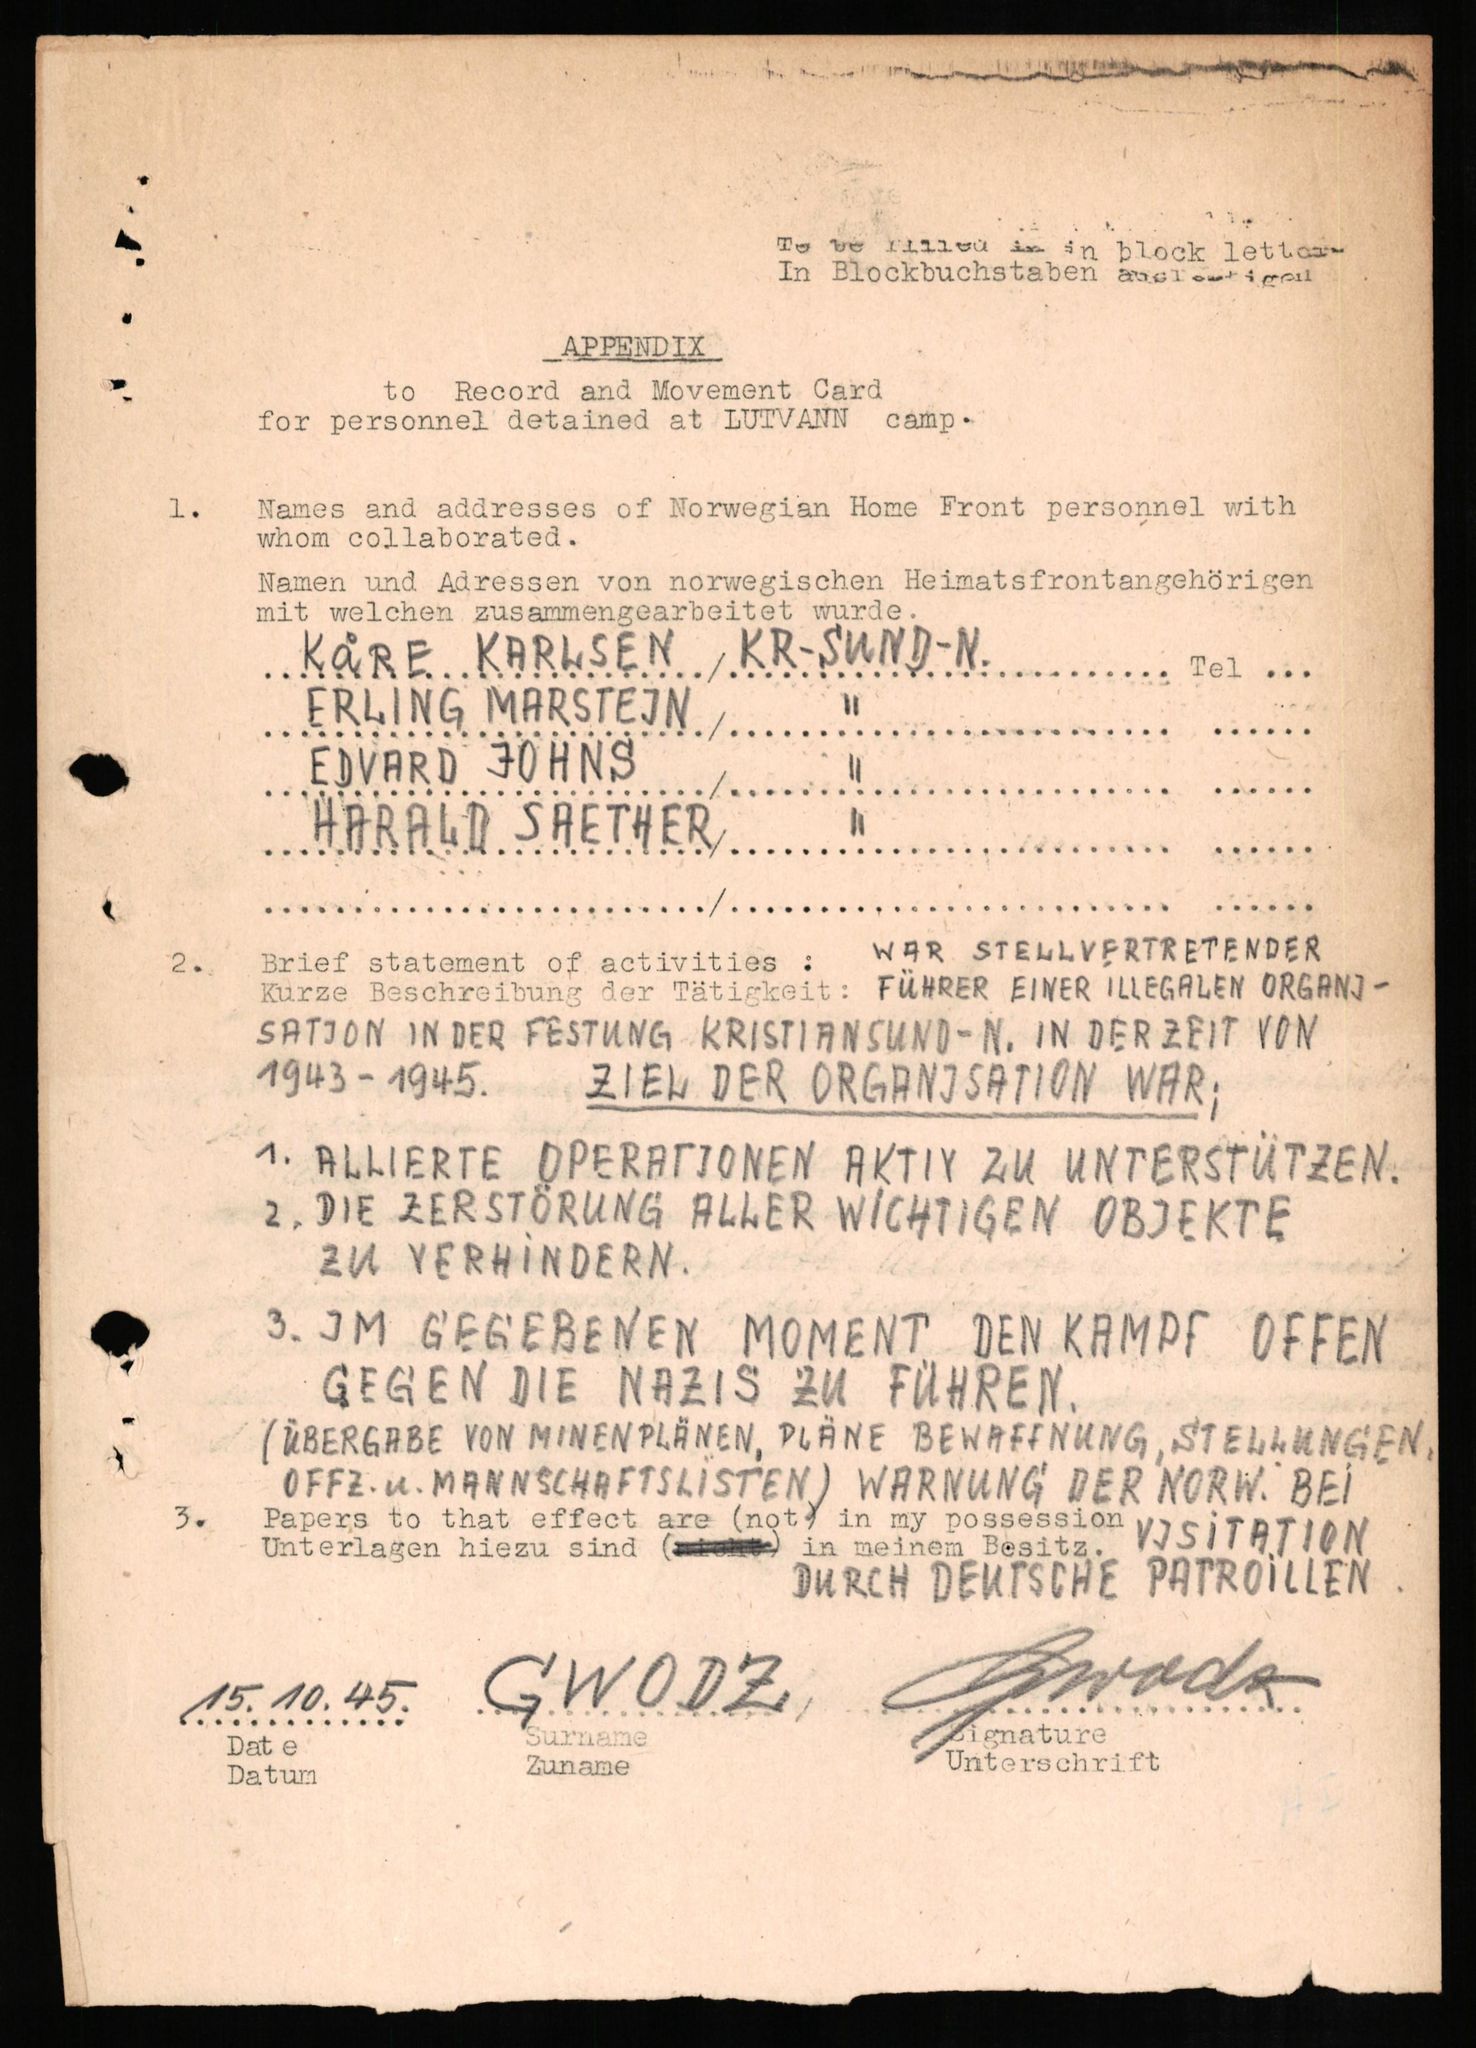 To be filled in in block letter
In Blockbuchstaben ausfertigen
APPENDIX
to Record and Movement Card
for personnel detained at LUTVANN camp.
1. Names and addresses of Norwegian Home Front personnel with
whom collaborated.
Namen und Adressen von norwegischen Heimatsfrontangehörigen
mit welchen zusammengearbeitet wurde.
KåRE KARLSEN / KR-SUND-N. Tel ...
ERLING MARSTEJN / "
EDVARD JOHNS / "
HARALD SAETHER / "
/
2. Brief statement of activities : WAR STELLVERTRETENDER
Kurze Beschreibung der Tätigkeit: FÜHRER EINER ILLEGALEN ORGANJ-
SATJON IN DER FESTUNG KRISTIANSUND-N. IN DER ZEIT VON
1943-1945. ZIEL DER ORGANJSATION WAR;
1. ALLIERTE OPERATJONEN AKTIV ZU UNTERSTÜTZEN.
2. DIE ZERSTÖRUNG ALLER WICHTIGEN OBJEKTE
ZU VERHINDERN.
3. JM GEGEBENEN MOMENT DEN KAMPF OFFEN
GEGEN DIE NAZIS ZU FÜHREN.
(ÜBERGABE VON MINENPLÄNEN, PLÄNE BEWAFFNUNG, STELLUNGEN,
OFFZ. u. MANNSCHAFTSLISTEN) WARNUNG DER NORW. BEI
3. Papers to that effect are (not) in my possession
Unterlagen hiezu sind (nicht) in meinem Besitz. VJSITATION
DURCH DEUTSCHE PATROILLEN.
15.10.45. GWODZ, Gwodz
Date Surname Signature
Datum Zuname Unterschrift